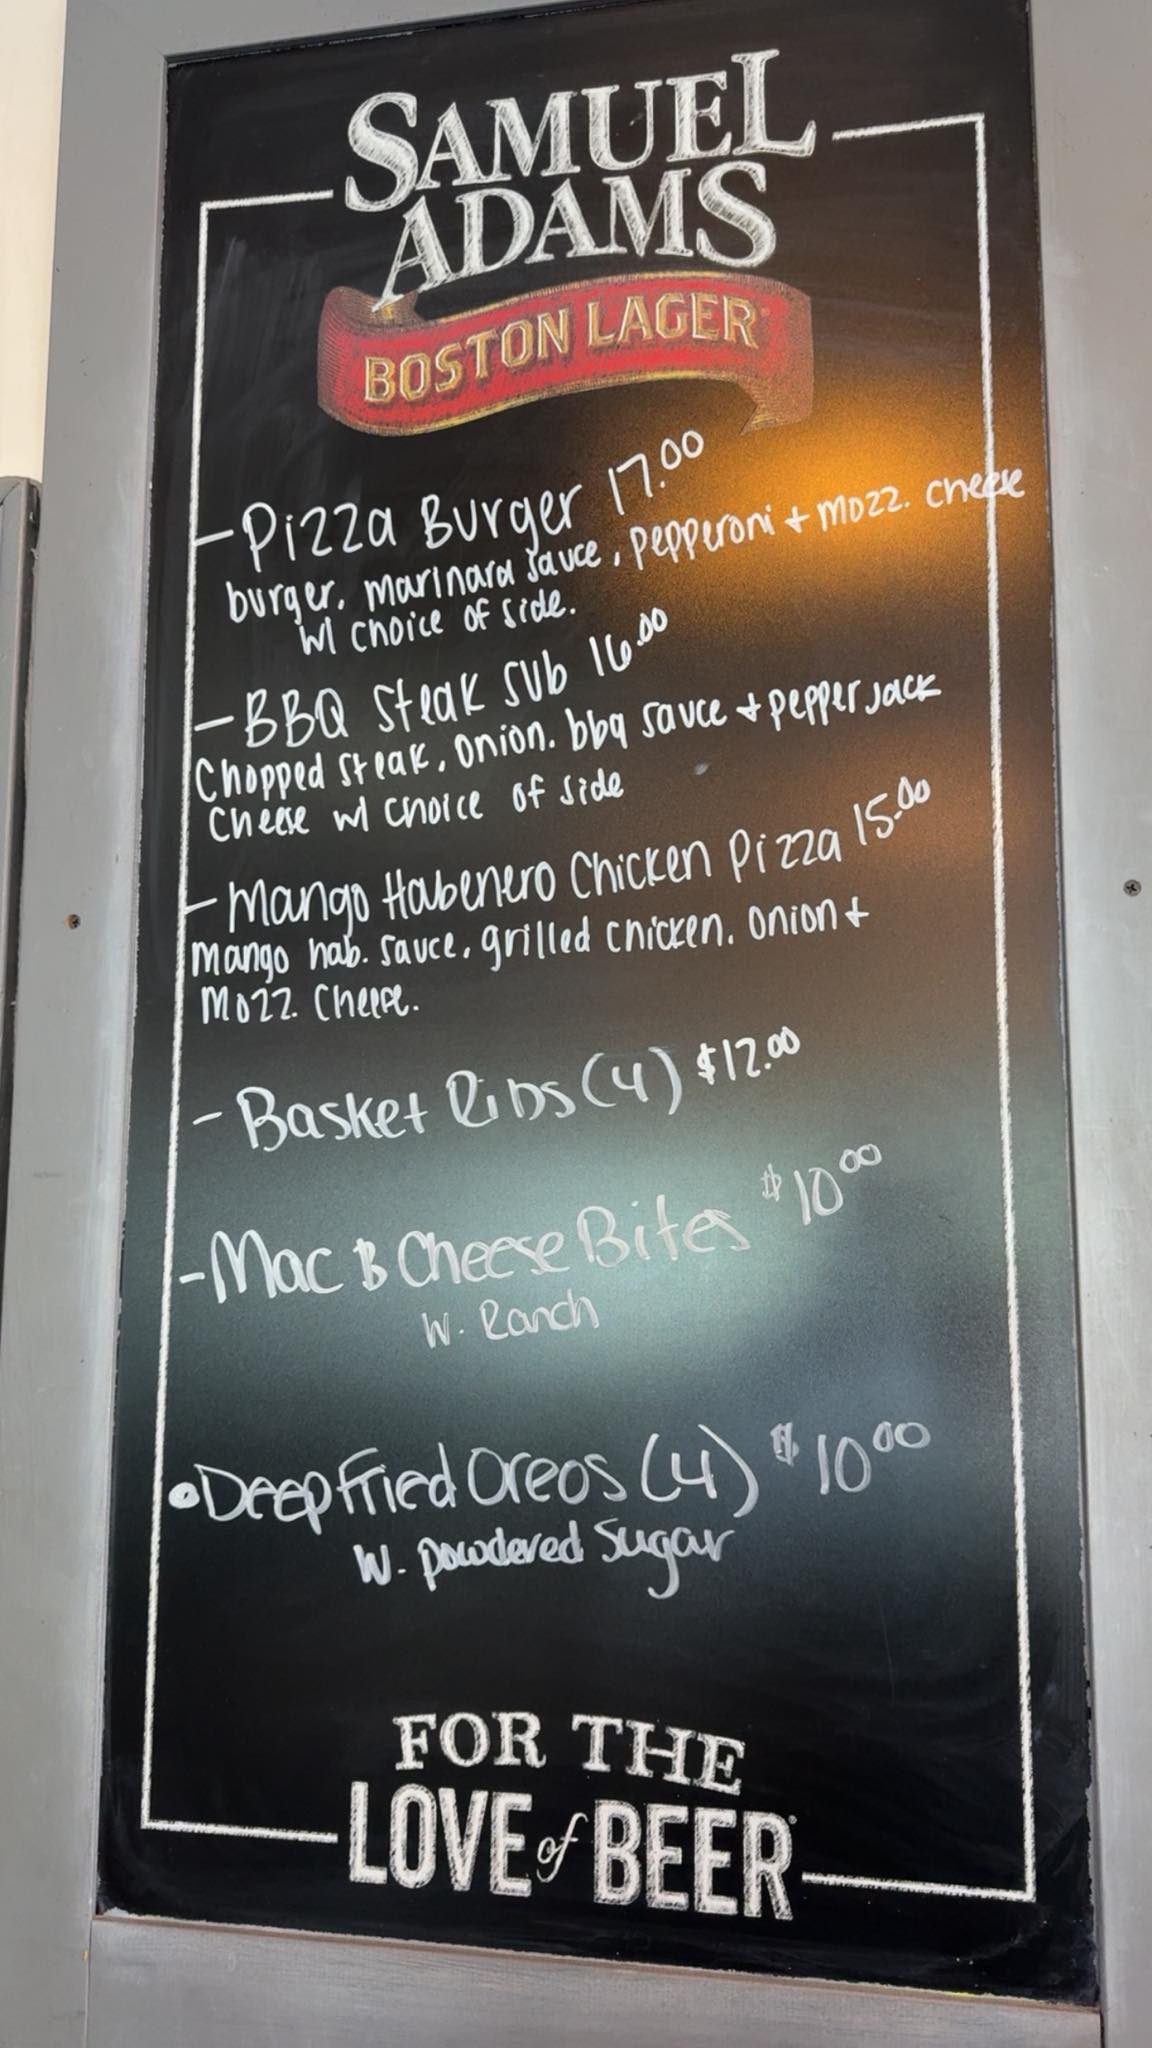 SAMUEL
ADAMS
BOSTON LAGER
- Pizza Burger 17.00
burger, marinara sauce, pepperoni + mozz. cheese
w/ choice of side.
- BBQ Steak Sub 16.00
Chopped steak, onion, bbq sauce + pepper jack
Cheese w/ choice of side
- Mango Habenero Chicken Pizza 15.00
Mango hab. sauce, grilled chicken, onion +
Mozz. Cheese.
- Basket Ribs (4) $12.00
- Mac & Cheese Bites $10.00
W. Ranch
• Deep Fried Oreos (4) $10.00
W. powdered Sugar
FOR THE
LOVE of BEER